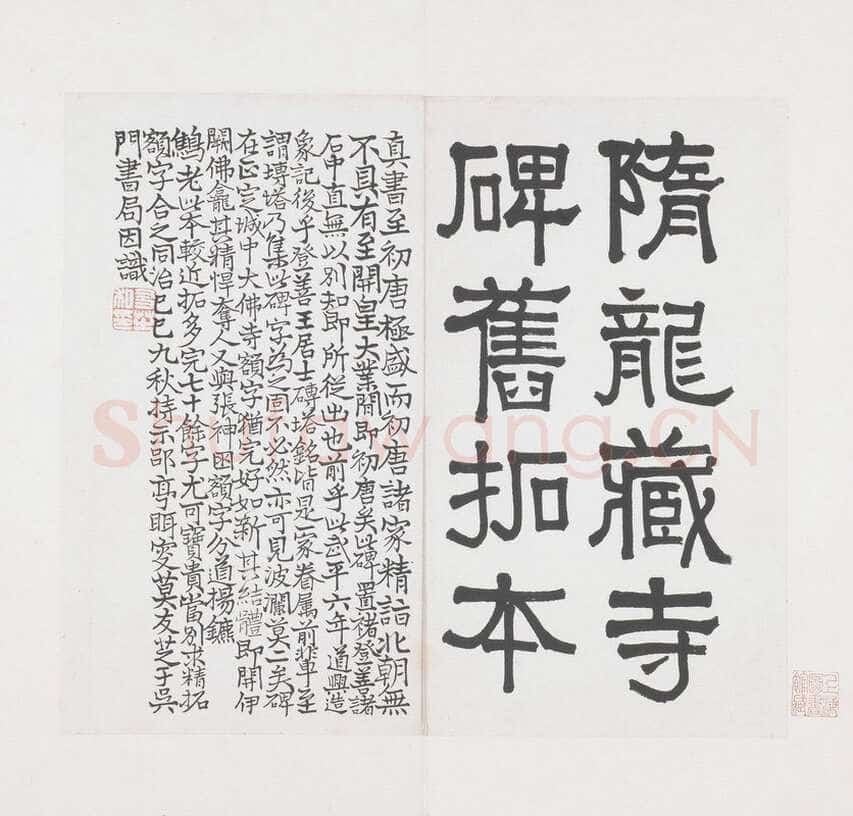 隋龍藏寺
碑舊拓本
真書至初唐極盛而初唐諸家精詣北朝無
不具有至開皇大業間即初唐矣此碑置褚登善諸
石中直無以別知即所從出也前乎此武平六年道興造
象記後乎登善王居士磚塔銘皆是一家眷屬前輩至
謂塼塔乃集此碑字為之固不必然亦可見波瀾莫二矣碑
在正定城中大佛寺額字猶完好如新其結體即開伊
闕佛龕其精悍奪人又與張神囧額字分道揚鑣
鶴老此本較近拓多完七十餘字尤可寶貴當別求精拓
額字合之同治己巳九秋持示郘亭眲叟莫友芝于吳
門書局因識
Shufawang.CN